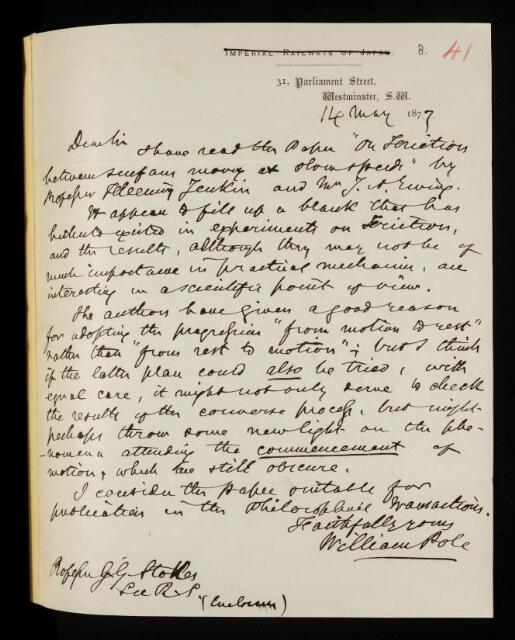 Imperial Railways of Japan. 8. 41
31, Parliament Street,
Westminster, S.W.
14 May 1877
Dear Sir
I have read the Paper "On Friction
between surfaces moving at slow speeds" by
Professor Fleeming Jenkin and Mr J. A. Ewing.
It appears to fill up a blank that has
hitherto existed in experiments on Friction,
and the results, although they may not be of
much importance in practical mechanism, are
interesting in a scientific point of view.
The authors have given a good reason
for adopting the progression "from motion to rest"
rather than "from rest to motion"; but I think
if the latter plan could also be tried, with
equal care, it might not only serve to check
the results of the converse process, but might
perhaps throw some new light on the phe-
-nomena attending the commencement of
motion, which are still obscure.
I consider the paper suitable for
publication in the Philosophical Transactions.
Faithfully yours
William Pole
Professor G. G. Stokes
Sec R. S
(Enclosure)